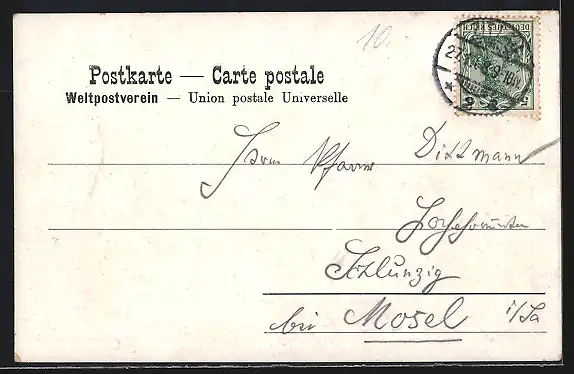 10.
DEUTSCHES REICH
5
Postkarte — Carte postale
Weltpostverein — Union postale Universelle
Herrn Pfarrer Dittmann
Schlunzig
bei Mosel i/Sa